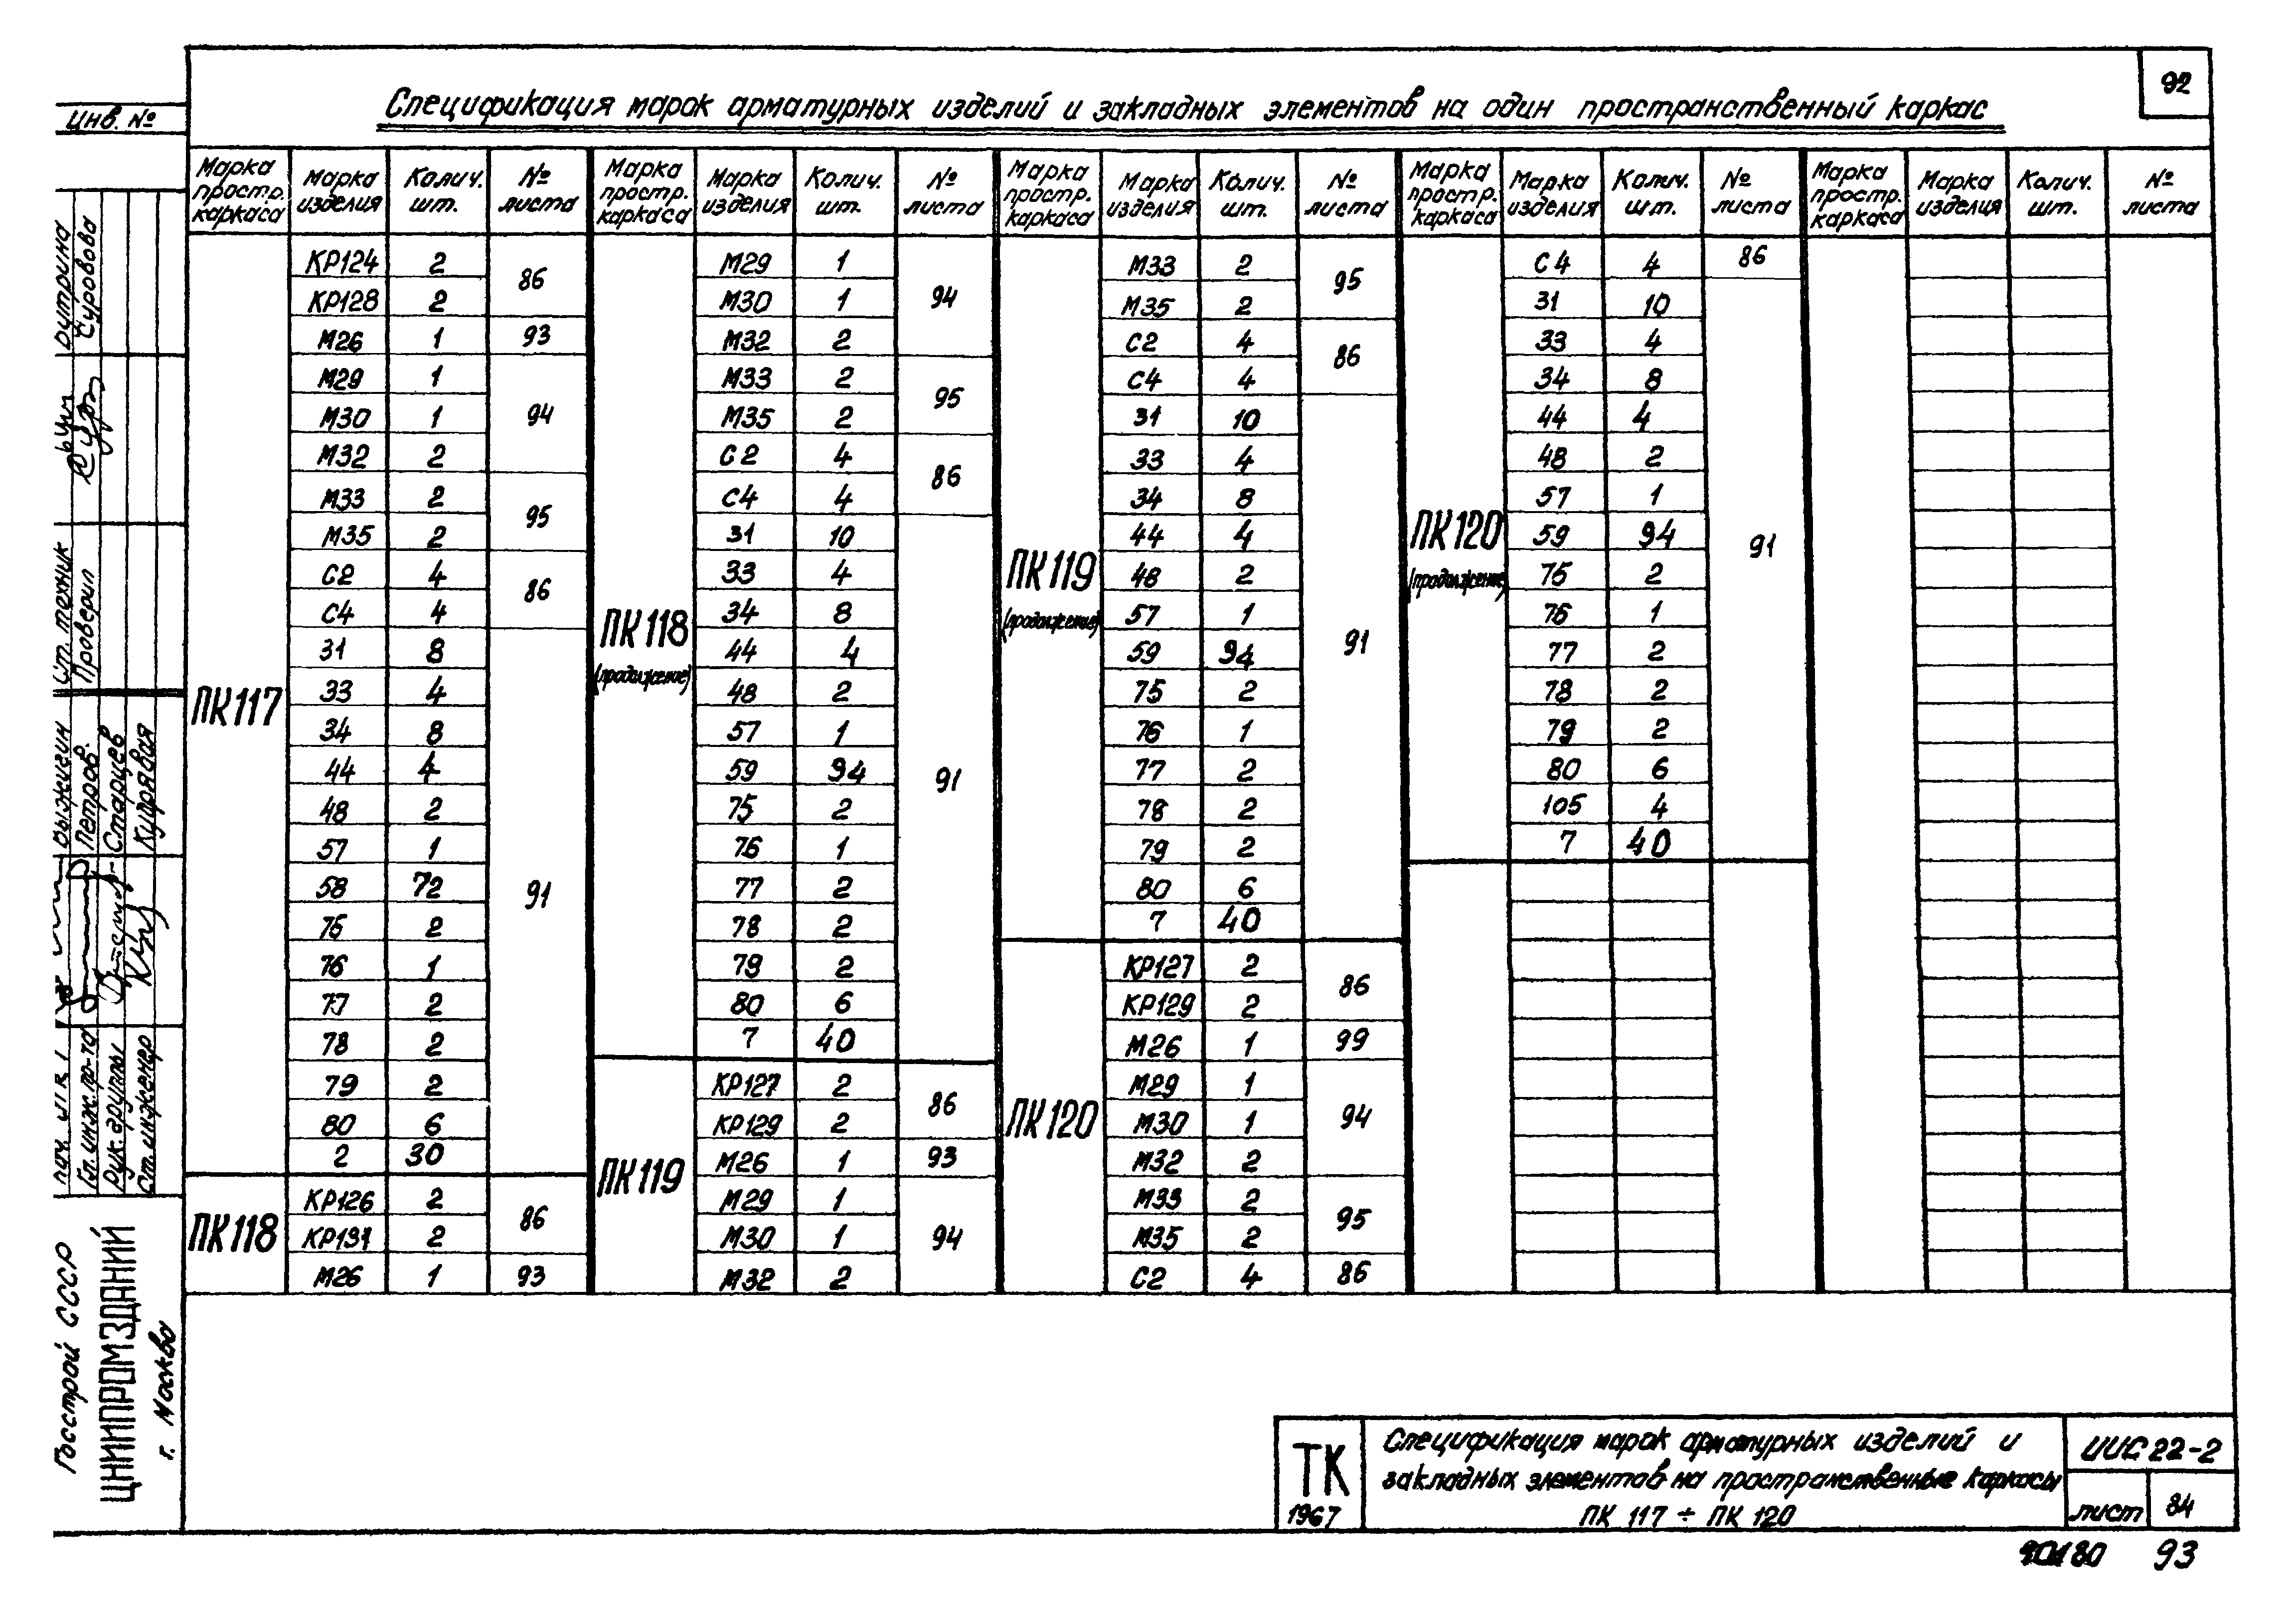 92
Спецификация марок арматурных изделий и закладных элементов на один пространственный каркас
Инв. №
Марка простр. каркаса Марка изделия Колич. шт. № листа Марка простр. каркаса Марка изделия Колич. шт. № листа Марка простр. каркаса Марка изделия Колич. шт. № листа Марка простр. каркаса Марка изделия Колич. шт. № листа Марка простр. каркаса Марка изделия Колич. шт. № листа
ПК117
КР124 2 86
КР128 2
М26 1 93
М29 1 94
М30 1
М32 2
М33 2 95
М35 2
С2 4 86
С4 4
31 8 91
33 4
34 8
44 4
48 2
57 1
58 72
75 2
76 1
77 2
78 2
79 2
80 6
2 30
ПК118
КР126 2 86
КР131 2
М26 1 93
ПК118
(продолжение)
М29 1 94
М30 1
М32 2
М33 2 95
М35 2
С2 4 86
С4 4
31 10 91
33 4
34 8
44 4
48 2
57 1
59 94
75 2
76 1
77 2
78 2
79 2
80 6
7 40
ПК119
КР127 2 86
КР129 2
М26 1 93
М29 1 94
М30 1
М32 2
ПК119
(продолжение)
М33 2 95
М35 2
С2 4 86
С4 4
31 10 91
33 4
34 8
44 4
48 2
57 1
59 94
75 2
76 1
77 2
78 2
79 2
80 6
7 40
ПК120
КР127 2 86
КР129 2
М26 1 99
М29 1 94
М30 1
М32 2
М33 2 95
М35 2
С2 4 86
ПК120
(продолжение)
С4 4 86
31 10 91
33 4
34 8
44 4
48 2
57 1
59 94
75 2
76 1
77 2
78 2
79 2
80 6
105 4
7 40
Ст. техник
Проверил
Суровова
Гл. инж. пр-та Петров.
Рук. группы Старцев
Ст. инженер Кудрявая
Госстрой СССР
ЦНИИПРОМЗДАНИЙ
г. Москва
ТК
1967
Спецификация марок арматурных изделий и
закладных элементов на пространственные каркасы
ПК 117 ÷ ПК 120
ИИС 22-2
лист 84
93